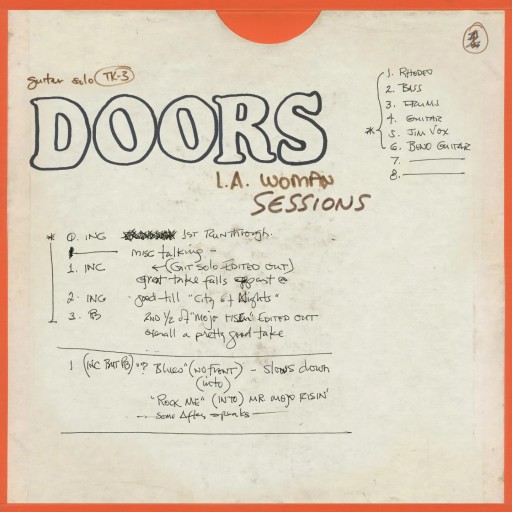 guitar solo TK-3
DOORS
L.A. WOMAN
SESSIONS
1. RHODES
2. BASS
3. DRUMS
4. GUITAR
* 5. JIM VOX
6. BEND GUITAR
7.
8.
* 0. INC 1ST RUNTHROUGH.
misc talking -
1. INC ←(GIT SOLO EDITED OUT)
great take falls apart @
2. INC good till "City of Nights"
3. PB 2ND 1/2 of "MOJO RISIN" EDITED OUT
overall a pretty good take
1 (INC BUT PB) "? BLUES" (NO FRONT) - Slows down
(into)
"ROCK ME" (INTO) MR MOJO RISIN'
- Some After